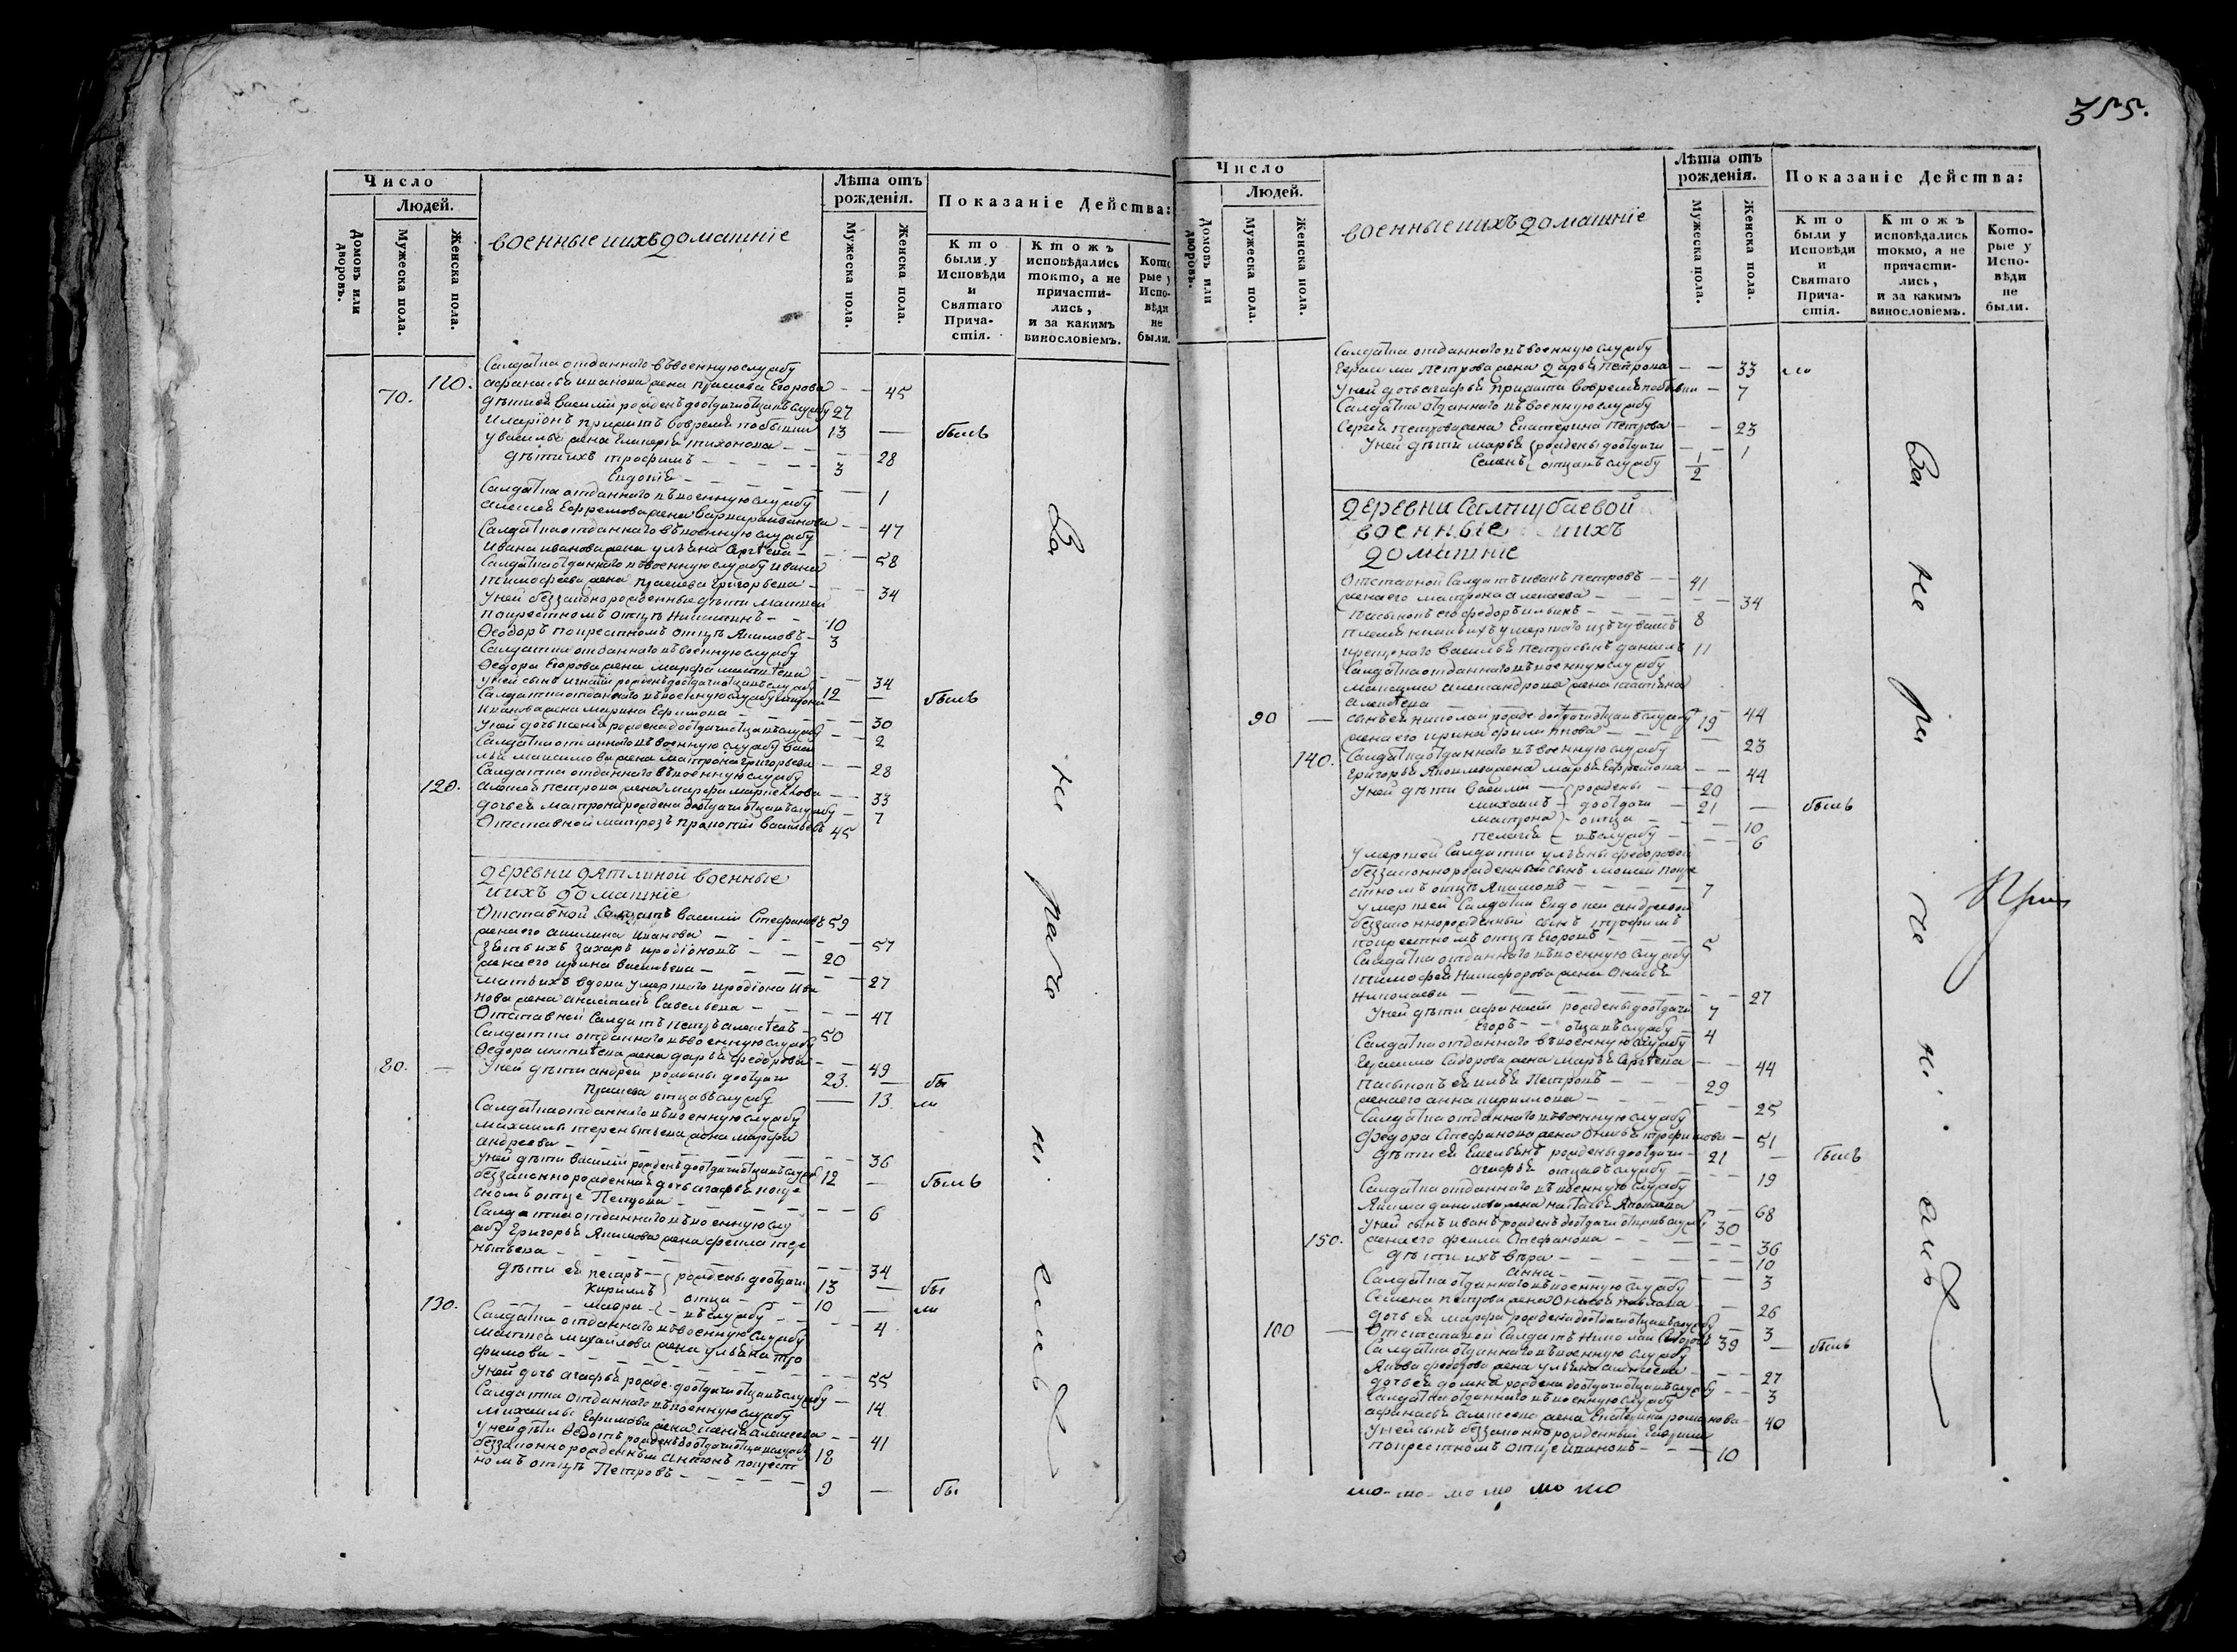 355.
Число
Людей.
Домовъ или дворовъ.
Мужеска пола.
Женска пола.
военные ихъ домашніе
Лѣта отъ рожденія.
Мужеска пола.
Женска пола.
Показаніе Действа:
Кто были у Исповѣди и Святаго Причастія.
Ктожъ исповѣдались токмо, а не причастились, и за какимъ винословіемъ.
Которые у Исповѣди не были.
Салдатка отданнаго въ военную службу
110. афанасья иванова жена Прасковья Егорова 45
70. дѣти ей Василій рожденъ до отдачи отца въ службу 27
Иларіонъ прижитъ во время побывки 13 — былъ
у василья жена Гликерія тихонова 28
дѣти ихъ трофимъ 3
Евдокія 1
Салдатка отданнаго въ военную службу
алексѣя Ефремова жена варвара иванова 47
Салдатка отданнаго въ военную службу
Ивана иванова жена ульяна Сергѣева 58
Салдатка отданнаго въ военную службу ивана
тимофеева жена прасковья григорьева 34
У ней беззаконно рожденные дѣти Матвей
по крестномъ отцѣ Никитинъ 10
Ѳеодоръ по крестномъ отцѣ Якимовъ 3
Салдатка отданнаго въ военную службу
Ѳедора Егорова жена марфа матвѣева 34
у ней сынъ игнатій рожденъ до отдачи отца въ службу 12 — былъ
Салдатка отданнаго въ военную службу
Иванова жена Марина Ефимова 30
У ней дочь ксенія рождена до отдачи отца въ службу 2
Салдатка отданнаго въ военную службу Васи
лья максимова жена матрона григорьева 28
Салдатка отданнаго въ военную службу
120. алексѣя петрова жена марфа 33
дочь ей матрона рождена до отдачи отца въ службу 7
Отставной матрозъ прокопій васильевъ 45
деревни дятлиной военные
и ихъ домашніе
Отставной Салдатъ василій Стефановъ 59
жена его акилина иванова 57
зять ихъ захаръ иродіоновъ 20
жена его ирина васильева 27
мать ихъ вдова умершаго иродіона Ива
нова жена анастасія Савельева 47
Отставной Салдатъ петръ алексѣевъ 50
Салдатка отданнаго въ военную службу
Ѳедора матвѣева жена дарья федорова 49
80. — У ней дѣти андрей рождены до отдачи 23. — бы
Прасковья отца въ службу — 13 ли
Салдатка отданнаго въ военную службу
михаила терентьева жена марфа
андреева 36
У ней дѣти василій рожденъ до отдачи отца въ службу 12 — былъ
беззаконно рожденная дочь агафья по кре
сномъ отце Петрова 6
Салдатка отданнаго въ военную слу
жбу Григорья Якимова жена фекла тере
нтьева 34
дѣти ей петръ рождены до отдачи 13 — бы
Кирилъ отца 10 — ли
130. мавра въ службу 4
Салдатка отданнаго въ военную службу
матвея михайлова жена ульяна тро
фимова 55
У ней дочь агафья рожде. до отдачи отца въ службу 14
Салдатка отданнаго въ военную службу
михаила Ефимова жена ксенія алексеева 41
У ней дѣти Ѳедотъ рожденъ до отдачи отца въ службу 18
беззаконно рожденный антонъ по крест
номъ отцѣ Петровъ 9 — бы
Число
Людей.
Домовъ или дворовъ.
Мужеска пола.
Женска пола.
военные и ихъ домашніе
Лѣта отъ рожденія.
Мужеска пола.
Женска пола.
Показаніе Действа:
Кто были у Исповѣди и Святаго Причастія.
Ктожъ исповѣдались токмо, а не причастились, и за какимъ винословіемъ.
Которые у Исповѣди не были.
Салдатка отданнаго въ военную службу
Герасима петрова жена дарья петрова 33 ли
У ней дочь агафья прижита во время побывки 7
Салдатка отданнаго въ военную службу
Сергея петрова жена Екатерина петрова 23
У ней дѣти марья рождены до отдачи 1
Семенъ отца въ службу 1/2
деревни
военные ихъ
домашніе
Отставной Салдатъ иванъ петровъ 41
жена его матрона алексеева 34
пасынокъ его федоръ ильинъ 8
племянникъ ихъ умершаго изъ чувашъ
крещенаго василья петра сынъ данилъ 11
Салдатка отданнаго въ военную службу
максима александрова жена татьяна
алексѣева 44
90 — сынъ ей николай рожде. до отдачи отца въ службу 19
жена его ирина филипова 23
140. Салдатка отданнаго въ военную службу
григорья Якимова жена марья Ефремова 44
У ней дѣти Василій рождены 20
михаилъ до отдачи 21 — былъ
матрона отца 10
пелагія въ службу 6
умершей Салдатки ульяны федоровой
беззаконно рожденный сынъ моисей по кре
стномъ отцѣ Якимовъ 7
умершей Салдатки Евдокіи андреевой
беззаконно рожденный сынъ трофимъ
по крестномъ отцѣ Егоровъ 5
Салдатка отданнаго въ военную службу
тимофея никифорова жена
Николаева 27
У ней дѣти афанасій рождены до отдачи 7
Егоръ отца въ службу 4
Салдатка отданнаго въ военную службу
Герасима Сидорова жена Марья Сергѣева 44
пасынокъ ей илья Петровъ 29
жена его анна кирилова 25
Салдатка отданнаго въ военную службу
федора Стефанова жена трофимова 51
дѣти ей Емельянъ рождены до отдачи 21 — былъ
агафья отца въ службу 19
Салдатка отданнаго въ военную службу
Якима данилова жена наталья Яковлева 68
У ней сынъ иванъ рожденъ до отдачи отца въ службу 30
150. жена его фекла Стефанова 36
дѣти ихъ вѣра 10
анна 3
Салдатка отданнаго въ военную службу
Семена петрова жена павлова 26
дочь ей марфа рождена до отдачи отца въ службу 3
100 — Отставной Салдатъ Николай 39 — былъ
Салдатка отданнаго въ военную службу
Якова федорова жена ульяна алексеева 27
дочь ей домна рождена до отдачи отца въ службу 3
Салдатка отданнаго въ военную службу
афанасья алексеева жена Екатерина романова 40
У ней сынъ беззаконно рожденный
по крестномъ отце ивановъ 10